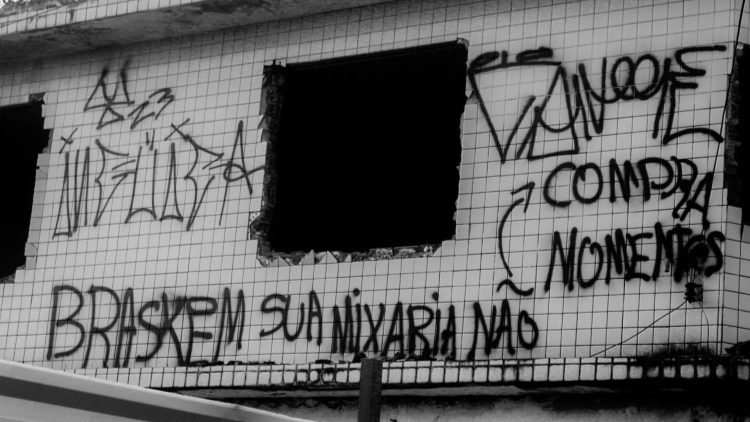 23
BRASKEM SUA MIXARIA NÃO
COMPRA
MOMENTOS